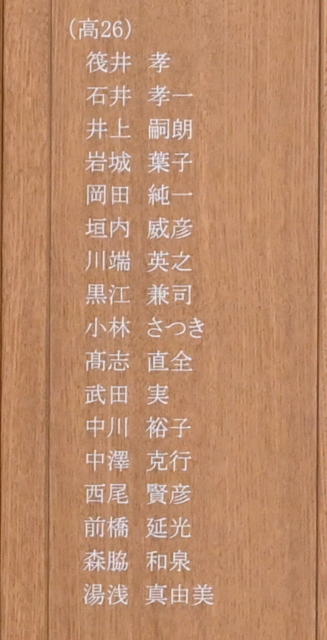 (高26)
筏井 孝
石井 孝一
井上 嗣朗
岩城 葉子
岡田 純一
垣内 威彦
川端 英之
黒江 兼司
小林 さつき
髙志 直全
武田 実
中川 裕子
中澤 克行
西尾 賢彦
前橋 延光
森脇 和泉
湯浅 真由美